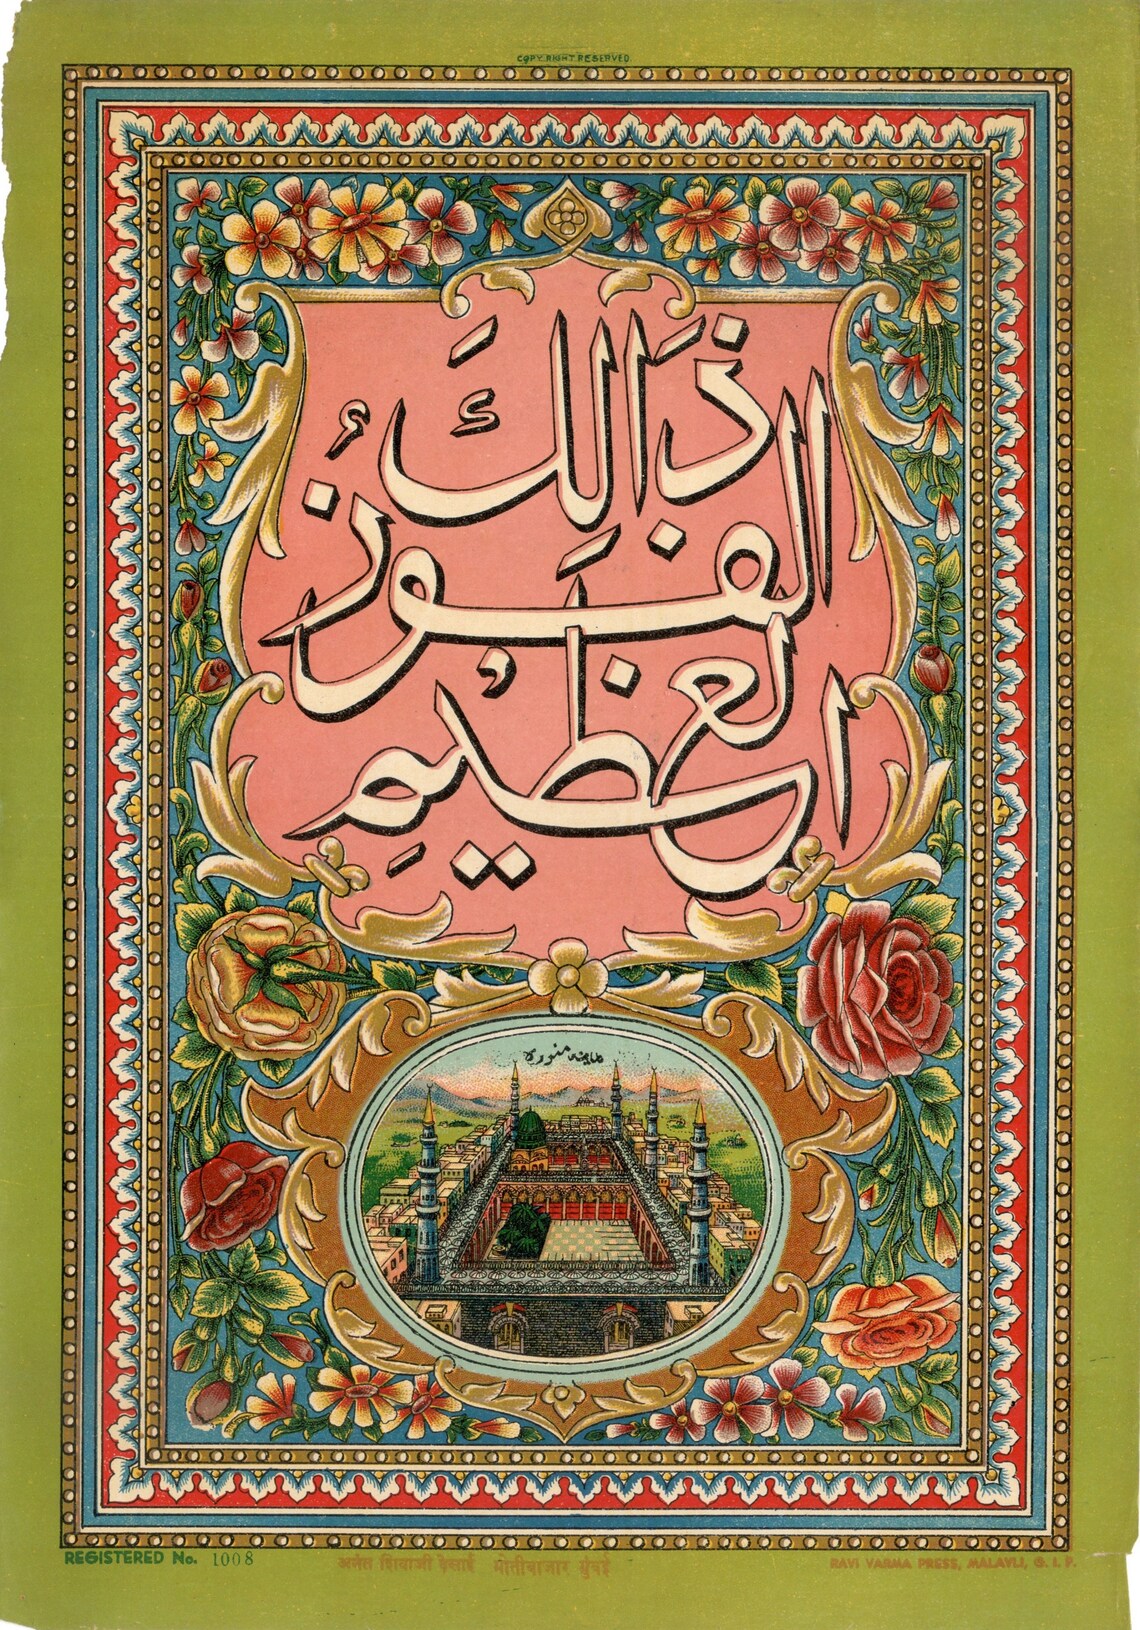 COPYRIGHT RESERVED.
ذَالِكَ
الفوزُ
العظيمِ
مدینه منوره
REGISTERED No. 1008
अनंत शिवाजी देसाई मोतीबाजार मुंबई
RAVI VARMA PRESS, MALAVLI, G. I. P.